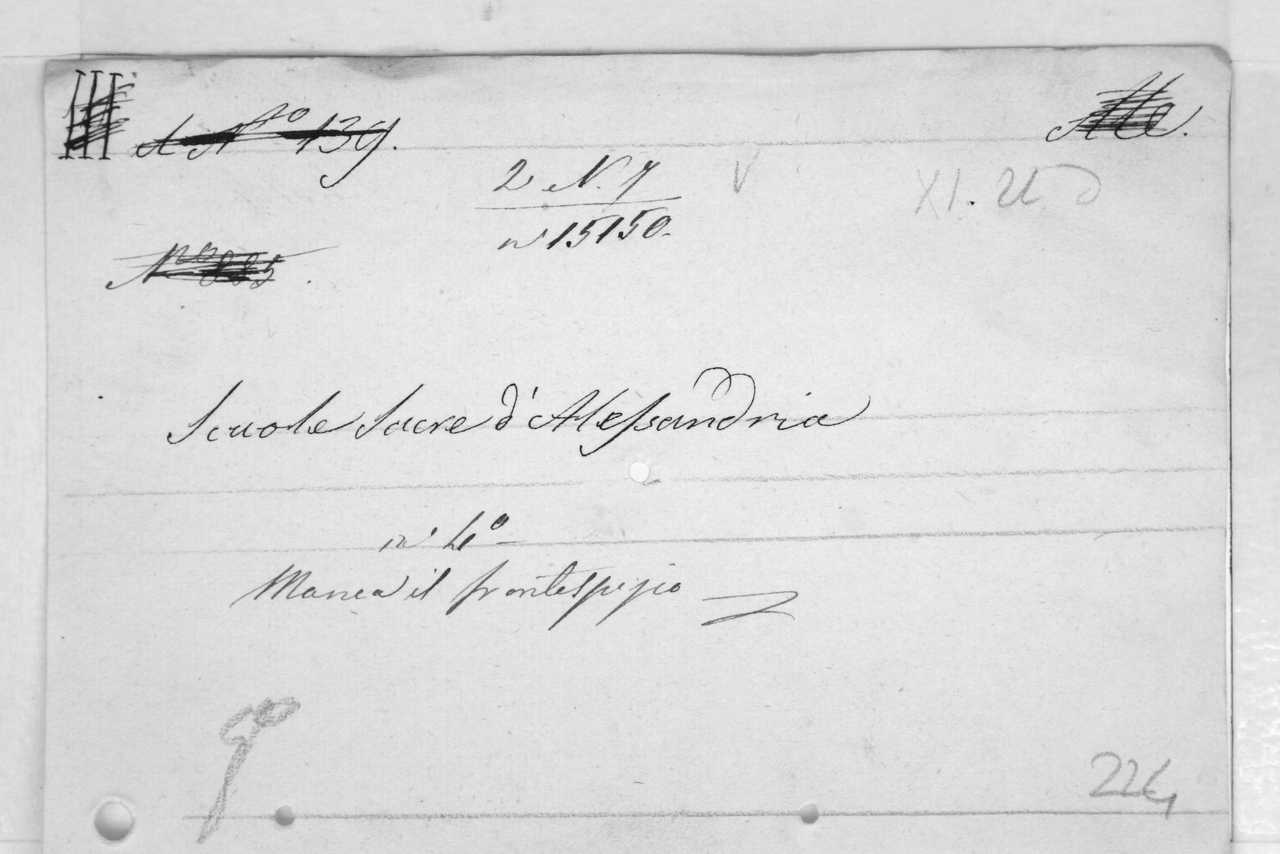 III A Nro 139. Ale.
2 N. 7 V
n' 15150.
Nro 885.
Scuole Sacre d'Alessandria
in 4o
Manca il frontespizio
224